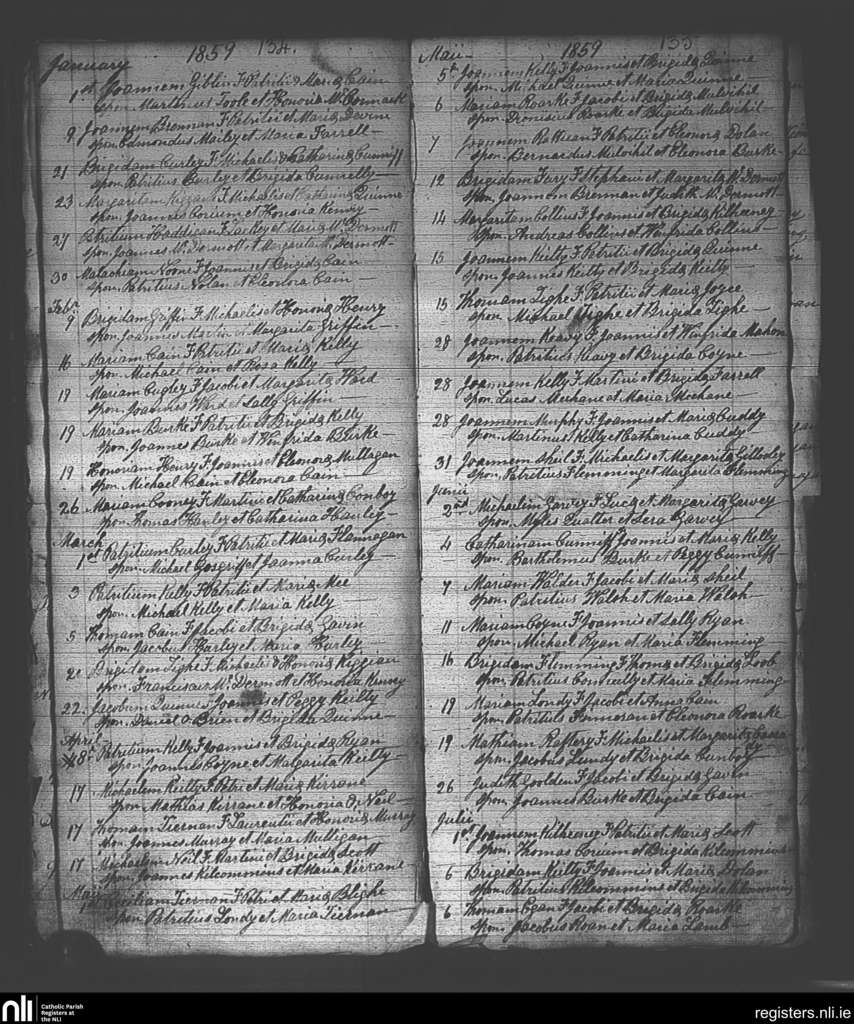 1859 134.
January
1st Joannem Giblin F. Patritii & Maria Cain
spon. Martinus Toole et Honoria McCormack
9 Joannem Brennan F. Patritii et Maria Devin
spon. Edmondus Maily et Maria Farrell
21 Brigidam Curley F. Michaelis & Catharina Cunniff
spon. Patritius Curley et Brigida
23 Margaritam F. Michaelis et Catharina Quinne
spon. Joannes et Honoria Kenny
27 Patritium Haddigan F. Lackey et Maria McDermott
spon. Joannes McDermott et Margarita McDermott
30 Malachiam Noone F. Joannis et Brigida Cain
spon. Patritius Nolan et Eleonora Cain
Feb.
9 Brigidam Griffin F. Michaelis et Honoria Henry
spon. Joannes Martin et Margarita Griffin
16 Mariam Cain F. Patritii et Maria Kelly
spon. Michael Cain et Rosa Kelly
19 Mariam F. Jacobi et Margarita Ward
spon. Joannes Ward et Sally Griffin
19 Mariam Burke F. Patritii et Brigida Kelly
spon. Joannes Burke et Winfrida Burke
19 Honoriam Henry F. Joannis et Eleonora Mullagan
spon. Michael Cain et Eleonora Cain
26 Mariam Cooney F. Martini et Catharina Conboy
spon. Thomas Hawley et Catharina Hawley
March
1st Patritium Curley F. Patritii et Maria Flannagan
spon. Michael et Joanna Curley
3 Patritium Kelly F. Patritii et Maria Mee
spon. Michael Kelly et Maria Kelly
5 Thomam Cain F. Jacobi et Brigida Gavin
spon. Jacobus Hurley et Maria Hurley
20 Brigidam Tighe F. Michaelis & Honoria
spon. Franciscus McDermott et Honoria Kenny
22. Jacobum Quinne Joannis et Peggy Reilly
spon. Daniel O Brien et Brigida Quinne
April
8 Patritium Kelly F. Joannis et Brigida Ryan
spon. Joannes Coyne et Margarita Reilly
17 Michaelem Reilly F. Petri et Maria Kirrane
spon. Mathias Kirrane et Honoria O Neil
17 Thomam Tiernan F. Laurentii et Honoria Murray
spon. Joannes Murray et Maria Mulligan
17 Michaelem Neil F. Martini et Brigida Scott
spon. Joannes Kilcommens et Maria Kirrane
Maii
1st Tiernan F. Petri et Maria Blighe
spon. Patritius Londy et Maria Tiernan
1859 135
Maii
5th Joannem Kelly F. Joannis et Brigida Quinne
spon. Michael Quinne et Maria Quinne
6 Mariam Roarke F. Jacobi et Brigida Mulvihil
spon. Dionisius Roarke et Brigida Mulvihil
7 Joannem F. Patritii et Eleonora Dolan
spon. Bernardus Mulvihil et Eleonora Burke
12 Brigidam Fury F. Stephani et Margarita McDermott
spon. Joannem Brennan et Judith McDermott
14 Margaritam Collins F. Joannis et Brigida Kilkenny
spon. Andreas Collins et Winfrida Collins
15 Joannem Keilty F. Patritii et Brigida Quinne
spon. Joannes Keilty et Brigida Keilty
15 Thomam Tighe F. Patritii et Maria Joyce
spon. Michael Tighe et Brigida Tighe
28 Joannem Keavy F. Joannis et Winfrida Mahon
spon. Patritius Keavy et Brigida Coyne
28 Joannem Kelly F. Martini et Brigida Farrell
spon. Lucas Meehane et Maria Meehane
28 Joannem Murphy F. Joannis et Maria Cuddy
spon. Martinus Kelly et Catharina Cuddy
31 Joannem Sheil F. Michaelis et Margarita Gillooley
spon. Patritius Flemming et Margarita Flemming
Junii
2nd Michaelem Garvey F. Luca et Margarita Garvey
spon. Myles Qualter et Sera Garvey
4 Catharinam Cunniff Joannis et Maria Kelly
spon. Bartholemus Burke et Peggy Cunniff
7 Mariam Walder F. Jacobi et Maria Sheil
spon. Patritius Walsh et Maria Walsh
11 Mariam Coyne F. Joannis et Sally Ryan
spon. Michael Ryan et Maria Flemming
16 Brigidam Flemming F. Thoma et Brigida Loob
spon. Patritius et Maria Flemming
19 Mariam Londy F. Jacobi et Anna Cain
spon. Patritius Finneran et Eleonora Roarke
19 Mathiam Raftery F. Michaelis et Margarita
spon. Jacobus Lundy et Brigida Cunboy
26 Judith Goolden F. Jacobi et Brigida Gavin
spon. Joannes Burke et Brigida Cain
Julii
1st Joannem Kilkenny F. Patritii et Maria Scott
spon. Thomas et Brigida Kilcommins
6 Brigidam Keilly F. Joannis et Maria Dolan
spon. Patritius Kilcommens et Brigida Kilcommins
6 Thomam Egan F. Jacobi et Brigida Roarke
spon. Jacobus Roan et Maria Lamb
nli
Catholic Parish
Registers at
the NLI
registers.nli.ie